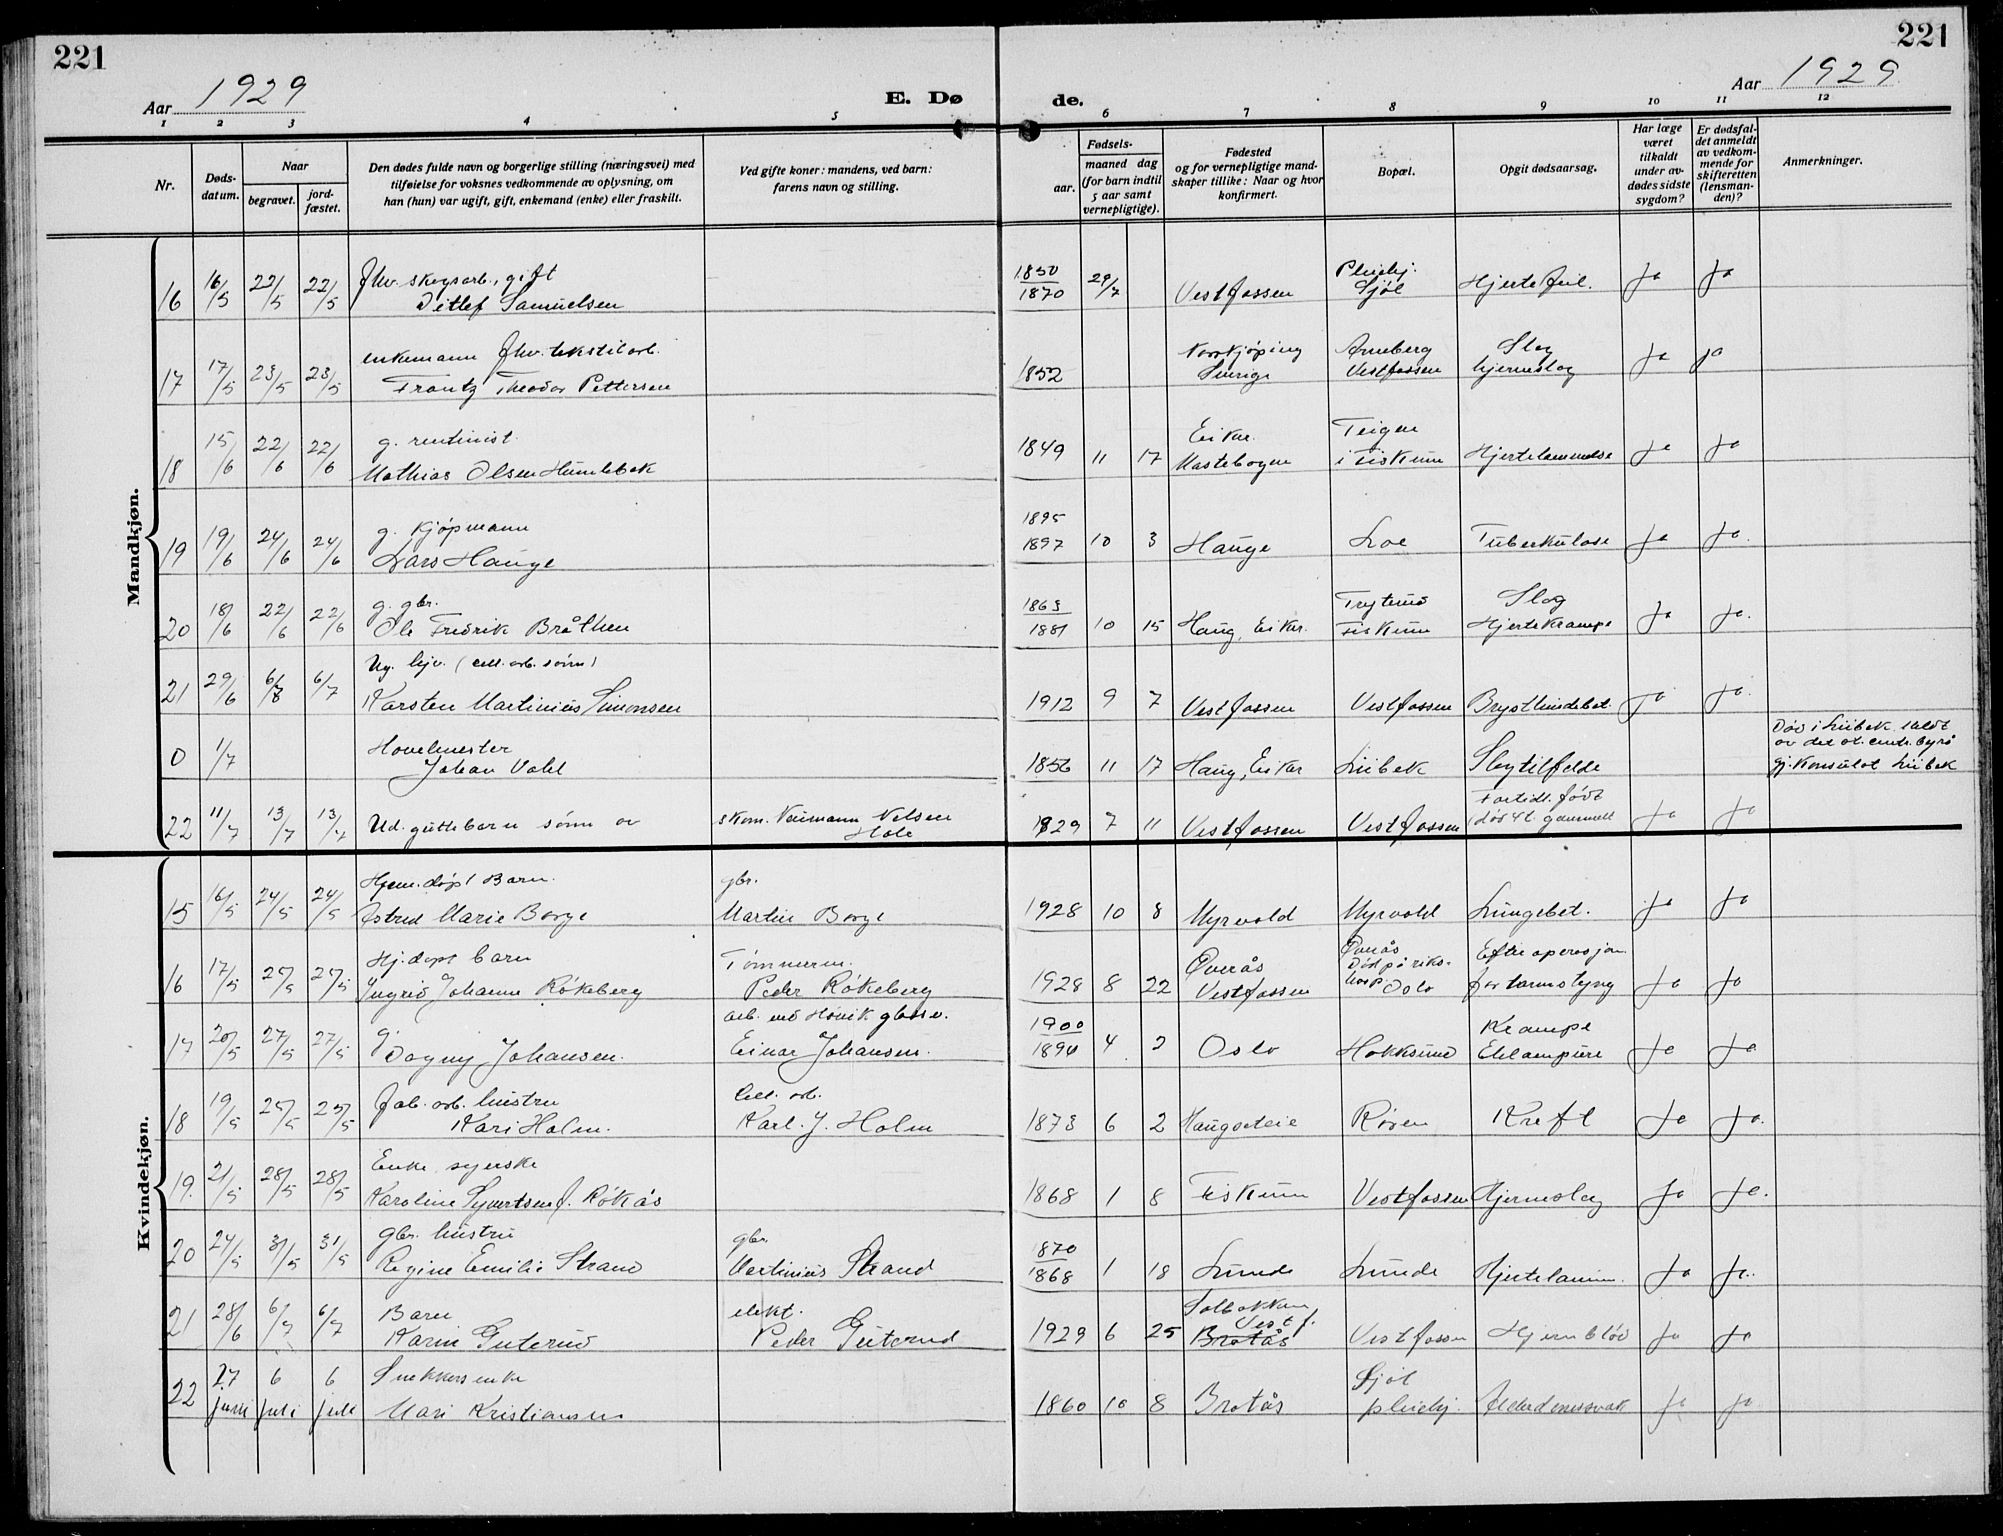 221
221
Aar 1929
E. Døde.
Aar 1929
1 2 3 4 5 6 7 8 9 10 11 12
Nr.
Døds-
datum.
Naar
begravet.
jord-
fæstet.
Den dødes fulde navn og borgerlige stilling (næringsvei) med
tilføielse for voksnes vedkommende av oplysning, om
han (hun) var ugift, gift, enkemand (enke) eller fraskilt.
Ved gifte koner: mandens, ved barn:
farens navn og stilling.
Fødsels-
aar.
maaned dag
(for barn indtil
5 aar samt
vernepligtige).
Fødested
og for vernepligtige mand-
skaper tillike: Naar og hvor
konfirmert.
Bopæl.
Opgit dødsaarsag.
Har læge
været
tilkaldt
under av-
dødes sidste
sygdom?
Er dødsfal-
det anmeldt
av vedkom-
mende for
skifteretten
(lensman-
den)?
Anmerkninger.
Mandkjøn.
fhv. skogsarb., gift 1850 Pleiehj.
16 16/5 22/5 22/5 Ditlef Samuelsen 1870 29/7 Vestfossen Sjøl Hjertefeil. Ja Ja
enkemann fhv. tekstilarb. Norrkjøping Arneberg Slag
17 17/5 23/5 23/5 Frantz Theodor Pettersen 1852 Sverige Vestfossen hjerneslag Ja Ja
g. rentinist Eiker. Teigen
18 15/6 22/6 22/6 Mathias Olsen Humlebæk 1849 11 17 Mastebogen i Fiskum Hjertelammelse Ja Ja
g. Kjøpmann 1895
19 19/6 24/6 24/6 Lars Hauge 1897 10 3 Hauge Loe Tuberkulose Ja Ja.
g. gbr. 1863 Tryterud Slag
20 18/6 22/6 22/6 Ole Fredrik Bråthen 1881 10 15 Haug, Eiker. Fiskum Hjertekrampe Ja Ja.
Ug. hjv. (cell. arb. sønn)
21 29/6 6/8 6/7 Karsten Martinius Simonsen 1912 9 7 Vestfossen Vestfossen Brysthindebet. Ja Ja.
Hovelmester Død i Lübek
0 1/7 Johan Vahl 1856 11 17 Haug, Eiker Lübek Slagtilfelde gj. Konsulat Lübek
Fortidl. født
22 11/7 13/7 13/7 Ud. guttebarn sønn av skom. Neumann Nelsen Hole 1929 7 11 Vestfossen Vestfossen død 4 t. gammelt Ja Ja
Kvindekjøn.
Hjem. døpt Barn. gbr.
15 16/5 24/5 24/5 Astrid Marie Borge Martin Borge 1928 10 8 Myrvold Myrvold Lungebet. Ja Ja
Hj. døpt barn Tømmerm. Øverås Øverås Død på riks- Efter operasjon
16 17/5 27/5 27/5 Ingrid Johanne Røkeberg Peder Røkeberg 1928 8 22 Vestfossen hosp Oslo for tarmslyng Ja Ja
g. arb. ved Høvik glassv. 1900 Krampe
17 20/5 27/5 27/5 Dagny Johansen. Einar Johansen. 1894 4 2 Oslo Hokksund Eklampsie Ja Ja
fab. arb. hustru Cell. arb.
18 19/5 25/5 25/5 Kari Holm. Karl. J. Holm 1873 6 2 Haugseteie Røren Kreft Ja Ja.
Enke, syerske
19. 21/5 28/5 28/5 Karoline Syvertsen f. Røkås 1868 1 8 Fiskum Vestfossen Hjerneslag Ja Ja.
gbr. hustru gbr. 1870
20 24/5 31/5 31/5 Regine Emilie Strand Martinius Strand 1868 1 18 Lunde Lunde Hjertelamm. Ja Ja.
Barn elekt. Solbakken Vestf.
21 28/6 6/7 6/7 Karin Guterud Peder Guterud 1929 6 25 Brotås Vestfossen Hjerneblød Ja Ja
Snekkersenke Sjøl
22 27 juni 6 juli 6 juli Mari Kristiansen 1860 10 8 Brotås pleiehj. Alderdomssvak Ja Ja